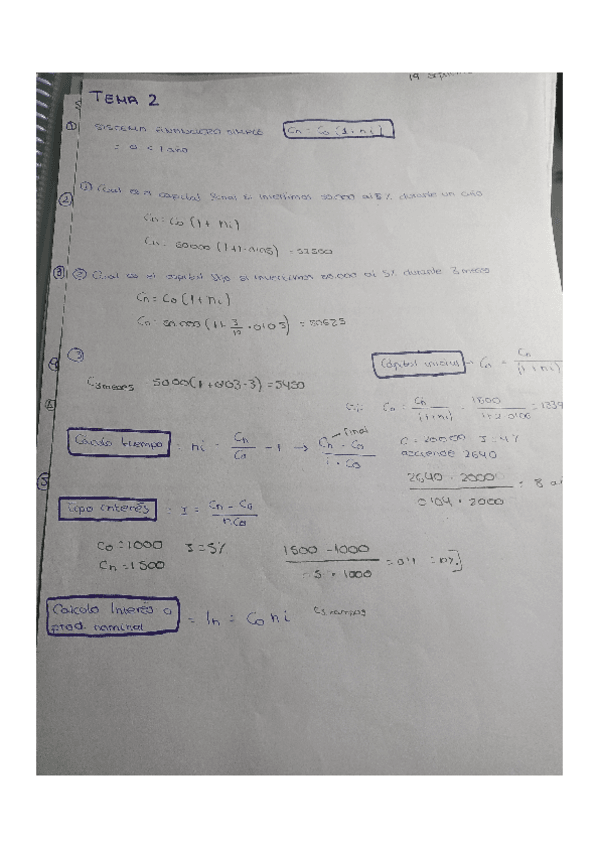 19 septiem
TEMA 2
① SISTEMA FINANCIERO SIMPLE Cn = Co (1 + ni)
= o < 1 año
② ① Cual es el capital final si invertimos 50.000 al 5% durante un año
Cn = Co (1 + ni)
Cn = 50000 (1+1·0'05) = 52500
③ ② Cual es el capital si invertimos 50.000 al 5% durante 3 meses
Cn = Co (1 + ni)
Cn = 50.000 (1+ 3/12 · 0'05) = 50625
④ ③ Capital inicial → = Cn / (1 + ni)
C3meses 5000 (1+0'03·3) = 5450
Co = Cn / (1+ni) = 1500 / 1+2·0'06 = 1339
Cálculo tiempo = ni = Cn / Co − 1 → Cn − Co / i · Co
final
C = 2000 I = 4%
asciende 2640
2640 - 2000 / 0'04 · 2000 = 8 a
⑤ Tipo interés : I = Cn − Co / nCo
Co = 1000 I = 5%
Cn = 1500
1500 − 1000 / 5 · 1000 = 0'1 = 10%
Calculo Interés o prod. nominal = In = Co n i